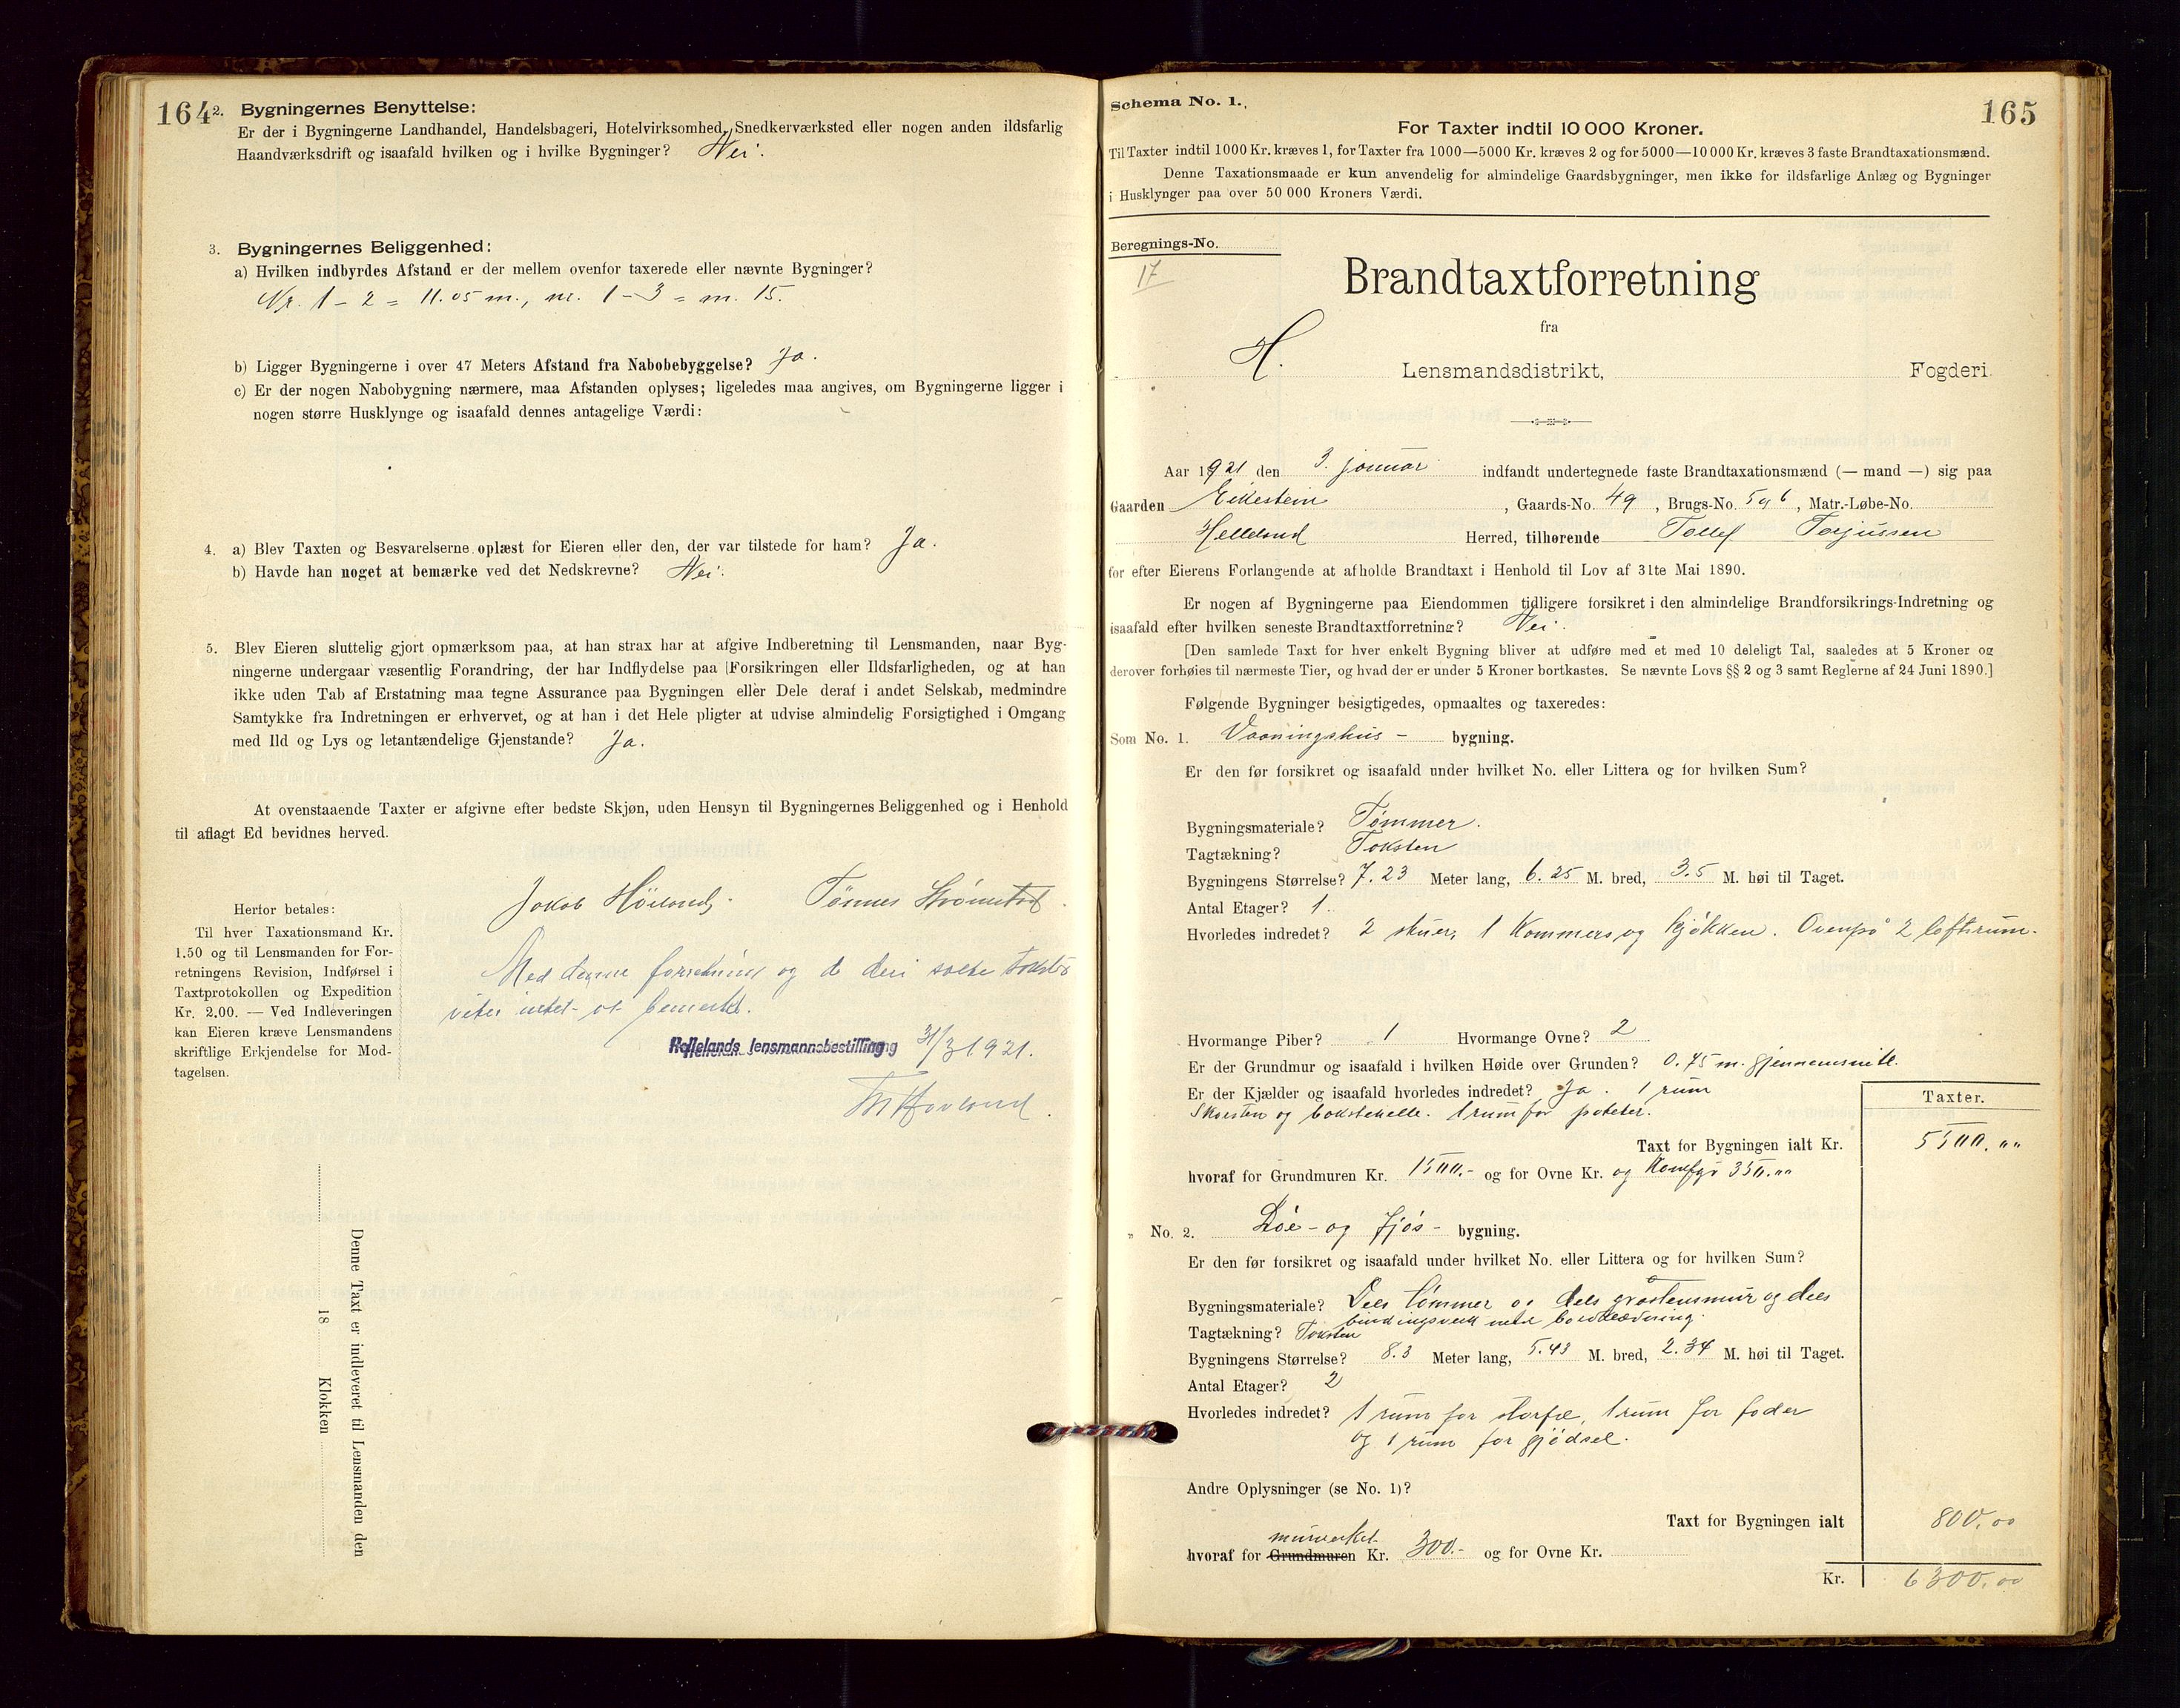 164
2. Bygningernes Benyttelse:
Er der i Bygningerne Landhandel, Handelsbageri, Hotelvirksomhed, Snedkerværksted eller nogen anden ildsfarlig
Haandværksdrift og isaafald hvilken og i hvilke Bygninger? Nei.
3. Bygningernes Beliggenhed:
a) Hvilken indbyrdes Afstand er der mellem ovenfor taxerede eller nævnte Bygninger?
Nr. 1 - 2 = 11.05 m., nr. 1 - 3 = m. 15.
b) Ligger Bygningerne i over 47 Meters Afstand fra Nabobebyggelse? Ja.
c) Er der nogen Nabobygning nærmere, maa Afstanden oplyses; ligeledes maa angives, om Bygningerne ligger i
nogen større Husklynge og isaafald dennes antagelige Værdi:
4. a) Blev Taxten og Besvarelserne oplæst for Eieren eller den, der var tilstede for ham? Ja.
b) Havde han noget at bemærke ved det Nedskrevne? Nei.
5. Blev Eieren sluttelig gjort opmærksom paa, at han strax har at afgive Indberetning til Lensmanden, naar Byg-
ningerne undergaar væsentlig Forandring, der har Indflydelse paa Forsikringen eller Ildsfarligheden, og at han
ikke uden Tab af Erstatning maa tegne Assurance paa Bygningen eller Dele deraf i andet Selskab, medmindre
Samtykke fra Indretningen er erhvervet, og at han i det Hele pligter at udvise almindelig Forsigtighed i Omgang
med Ild og Lys og letantændelige Gjenstande? Ja.
At ovenstaaende Taxter er afgivne efter bedste Skjøn, uden Hensyn til Bygningernes Beliggenhed og i Henhold
til aflagt Ed bevidnes herved.
Jakob Höiland. Tönnes Strömstad.
Herfor betales:
Til hver Taxationsmand Kr.
1.50 og til Lensmanden for For-
retningens Revision, Indførsel i
Taxtprotokollen og Expedition
Kr. 2.00. — Ved Indleveringen
kan Eieren kræve Lensmandens
skriftlige Erkjendelse for Mod-
tagelsen.
Med denne forretning og de deri satte takster
vites intet at bemerke.
Hellelands lensmannsbestilling 31/3 1921.
Hovland.
Denne Taxt er indleveret til Lensmanden den
18 Klokken
Schema No. 1.
165
For Taxter indtil 10 000 Kroner.
Til Taxter indtil 1000 Kr. kræves 1, for Taxter fra 1000—5000 Kr. kræves 2 og for 5000—10 000 Kr. kræves 3 faste Brandtaxationsmænd.
Denne Taxationsmaade er kun anvendelig for almindelige Gaardsbygninger, men ikke for ildsfarlige Anlæg og Bygninger
i Husklynger paa over 50 000 Kroners Værdi.
Beregnings-No.
17
Brandtaxtforretning
fra
H. Lensmandsdistrikt, Fogderi.
Aar 1921 den 3. januar indfandt undertegnede faste Brandtaxationsmænd (— mand —) sig paa
Gaarden Eikestein, Gaards-No. 49, Brugs-No. 5 og 6, Matr.-Løbe-No.
Helleland Herred, tilhørende Tollef Torjussen
for efter Eierens Forlangende at afholde Brandtaxt i Henhold til Lov af 31te Mai 1890.
Er nogen af Bygningerne paa Eiendommen tidligere forsikret i den almindelige Brandforsikrings-Indretning og
isaafald efter hvilken seneste Brandtaxtforretning? Nei.
[Den samlede Taxt for hver enkelt Bygning bliver at udføre med et med 10 deleligt Tal, saaledes at 5 Kroner og
derover forhøies til nærmeste Tier, og hvad der er under 5 Kroner bortkastes. Se nævnte Lovs §§ 2 og 3 samt Reglerne af 24 Juni 1890.]
Følgende Bygninger besigtigedes, opmaaltes og taxeredes:
Som No. 1. Vaaningshus - bygning.
Er den før forsikret og isaafald under hvilket No. eller Littera og for hvilken Sum?
Bygningsmateriale? Tømmer.
Tagtækning? Taksten
Bygningens Størrelse? 7.23 Meter lang, 6.25 M. bred, 3.5 M. høi til Taget.
Antal Etager? 1.
Hvorledes indredet? 2 stuer, 1 Kammers og kjøkken. Ovenpå 2 loftsrum.
Hvormange Piber? 1 Hvormange Ovne? 2
Er der Grundmur og isaafald i hvilken Høide over Grunden? 0.75 m. gjennemsnitl.
Er der Kjælder og isaafald hvorledes indredet? Ja. 1 rum
1 rum for poteter.
Taxter.
Taxt for Bygningen ialt Kr. 5500.,,
hvoraf for Grundmuren Kr. 1500.- og for Ovne Kr. og Komfyr 350.,,
" No. 2. Løe - og fjøs - bygning.
Er den før forsikret og isaafald under hvilket No. eller Littera og for hvilken Sum?
Bygningsmateriale? Dels tømmer og dels gråstensmur og dels
bindingsverk med bordklædning.
Tagtækning? Taksten
Bygningens Størrelse? 8.3 Meter lang, 5.43 M. bred, 2.34 M. høi til Taget.
Antal Etager? 2
Hvorledes indredet? 1 rum for storfæ, 1 rum for foder
og 1 rum for gjødsel.
Andre Oplysninger (se No. 1)?
Taxt for Bygningen ialt 800.00
murverket
hvoraf for Grundmuren Kr. 300.- og for Ovne Kr.
Kr. 6300.00